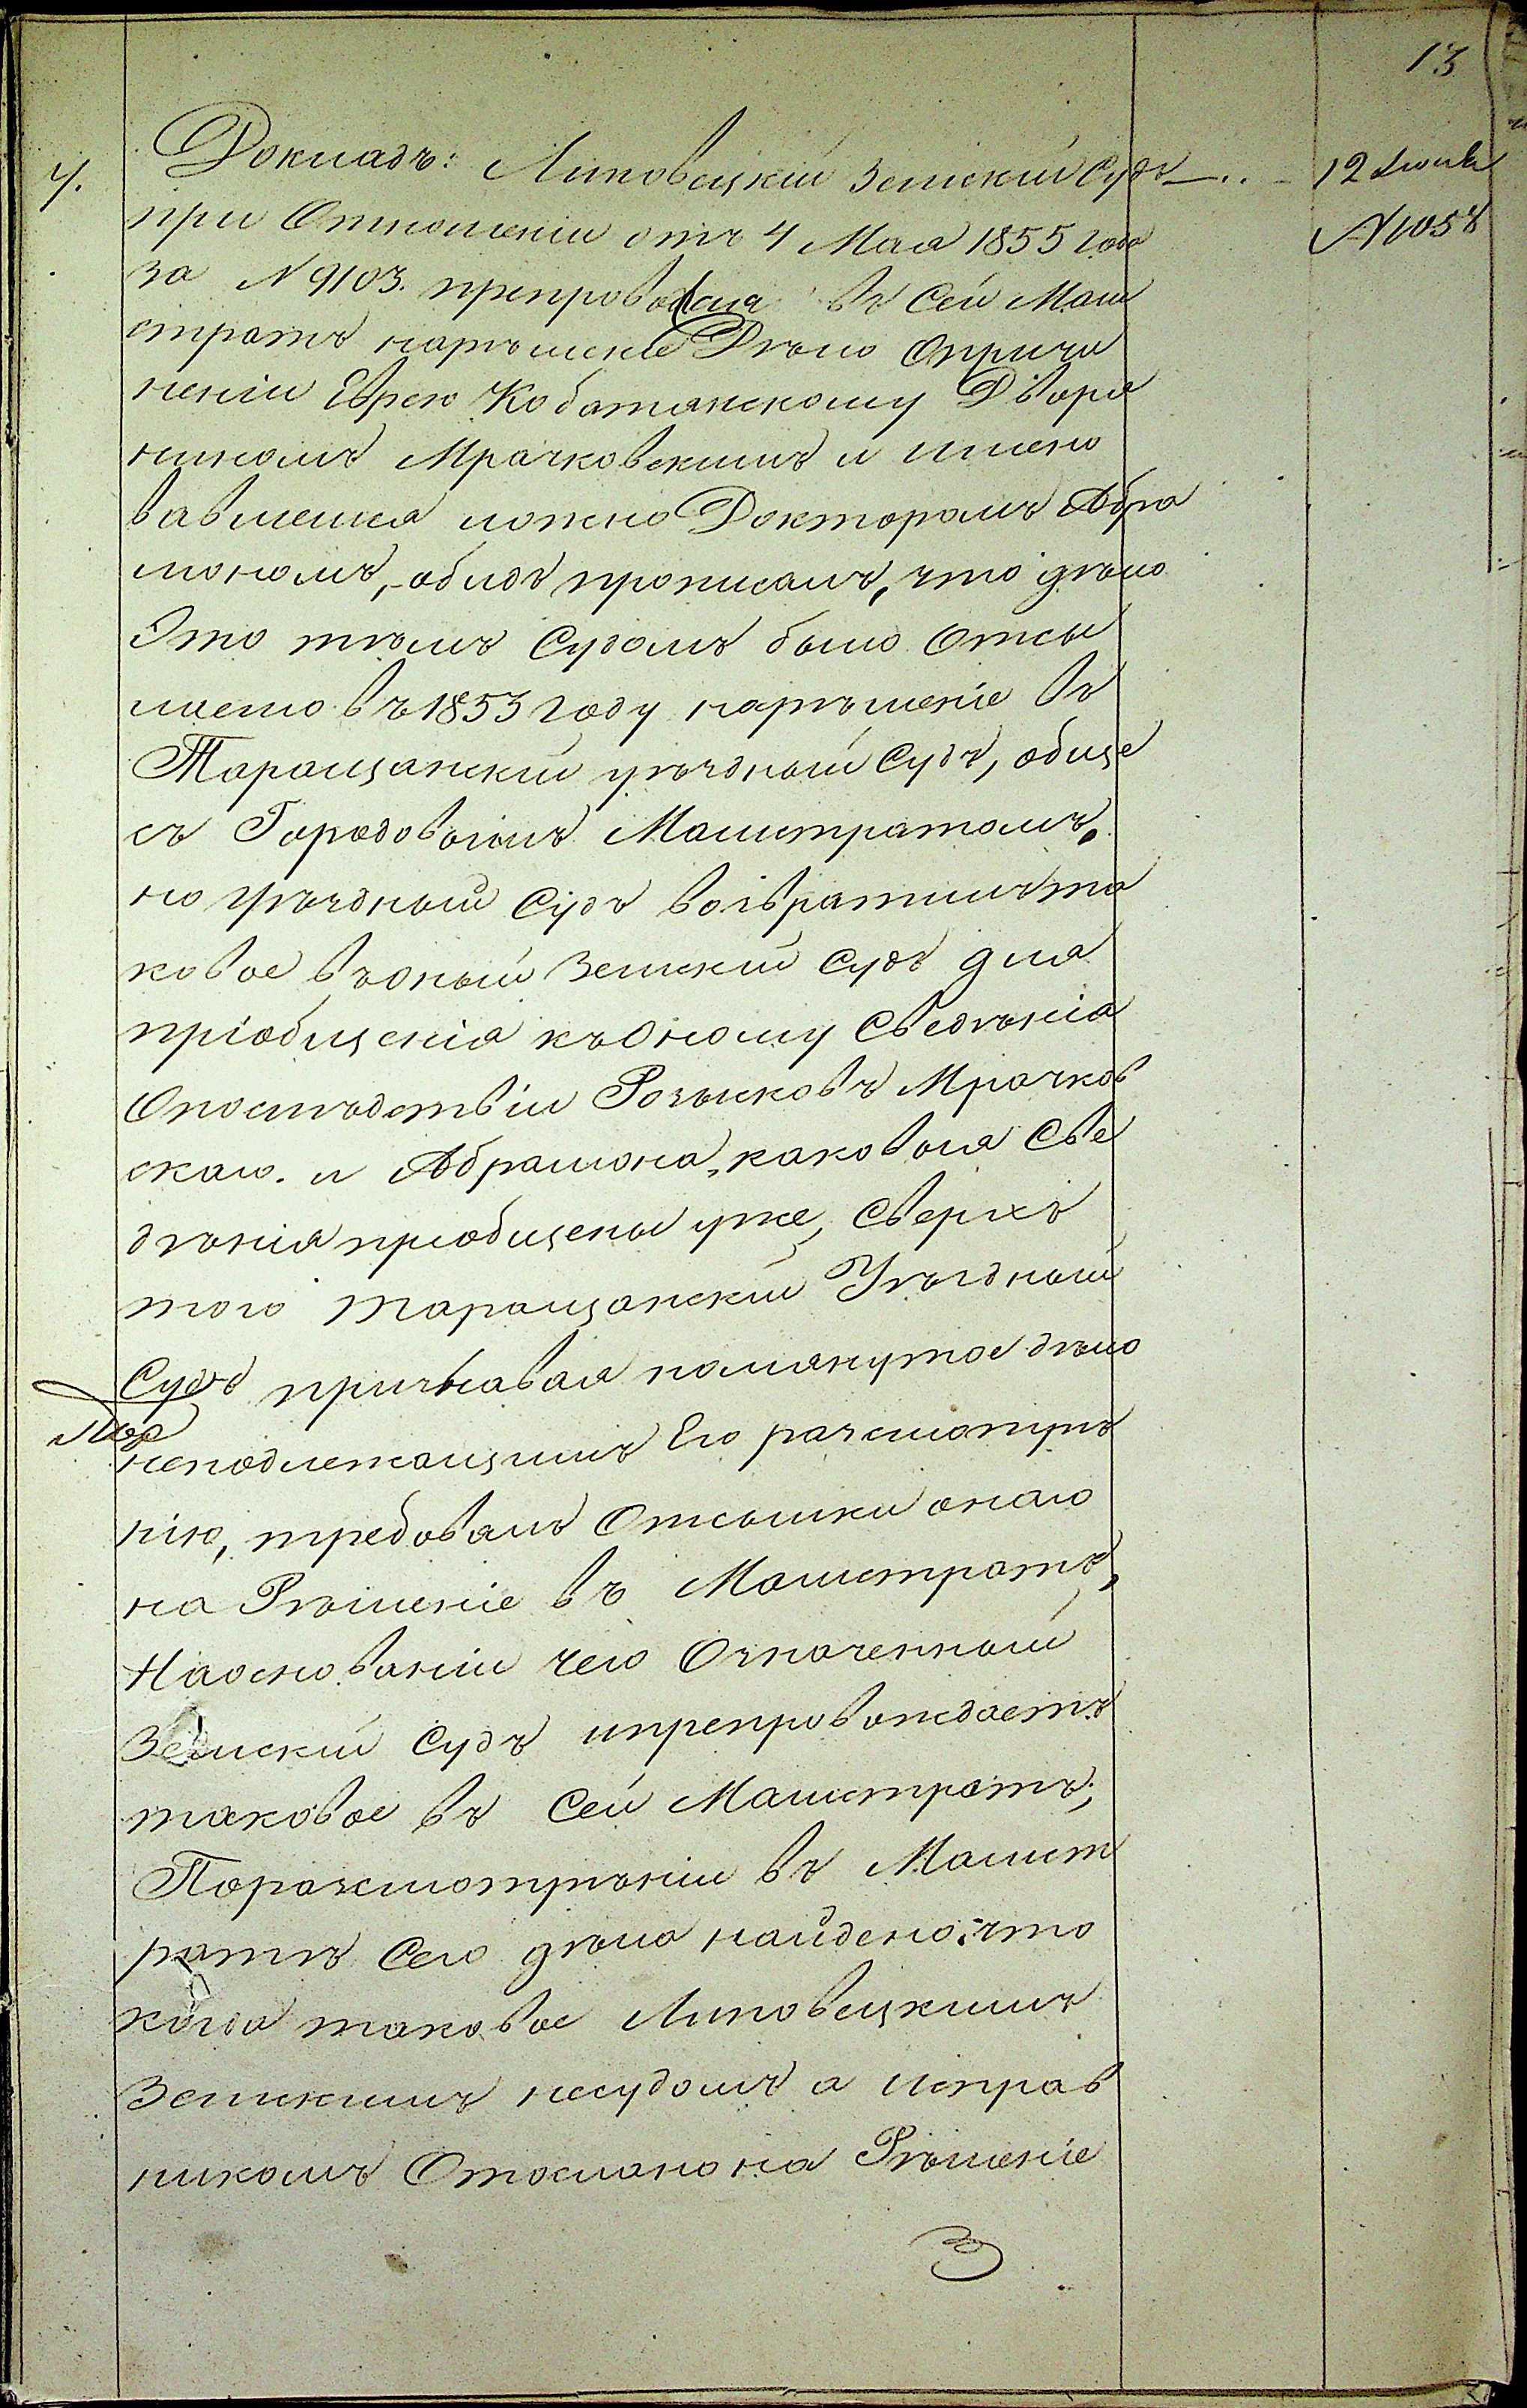 13
7. Докладъ: Липовецкій Земскій Судъ 12 Іюля
при Отношеніи отъ 4 Мая 1855 года N 1058
за N 9103. препровождая въ Сей Маги
стратъ нарѣшеніе Дѣло Опричи
неніи Еврею Кобатанскому Дворя
ниномъ Мрачковскимъ и имено
вавшемся ложно Докторомъ Абра
мономъ, обидъ прописалъ, что дѣло
Это тѣмъ Судомъ было Отсы
лаемо въ 1853 году нарѣшеніе въ
Таращанскій уѣздный Судъ, обще
съ Городовымъ Магистратомъ,
но уѣздный Судъ возвратилъ та
ковое въ оный Земскій Судъ для
пріобщенія къ Оному Сведѣнія
Опослѣдствіи Розысковъ Мрачков
скаго. и Абрамона, каковыя Све
дѣнія пріобщены уже, Сверхъ
того таращанскій Уѣздный
Судъ признавая помянутое дѣло
неподлежащимъ Его разсмотрѣ
нію, требовалъ Отсылки онаго
на Рѣшеніе въ Магистратъ,
Наоснованіи чего Означенный
Земскій Судъ ипрепровождаетъ
таковое въ Сей Магистратъ;
Поразсмотрѣніи въ Магист
ратѣ Сего дѣла найдено: что
когда таковое Липовецкимъ
Земскимъ несудомъ а исправ
никомъ Отослано на Рѣшеніе